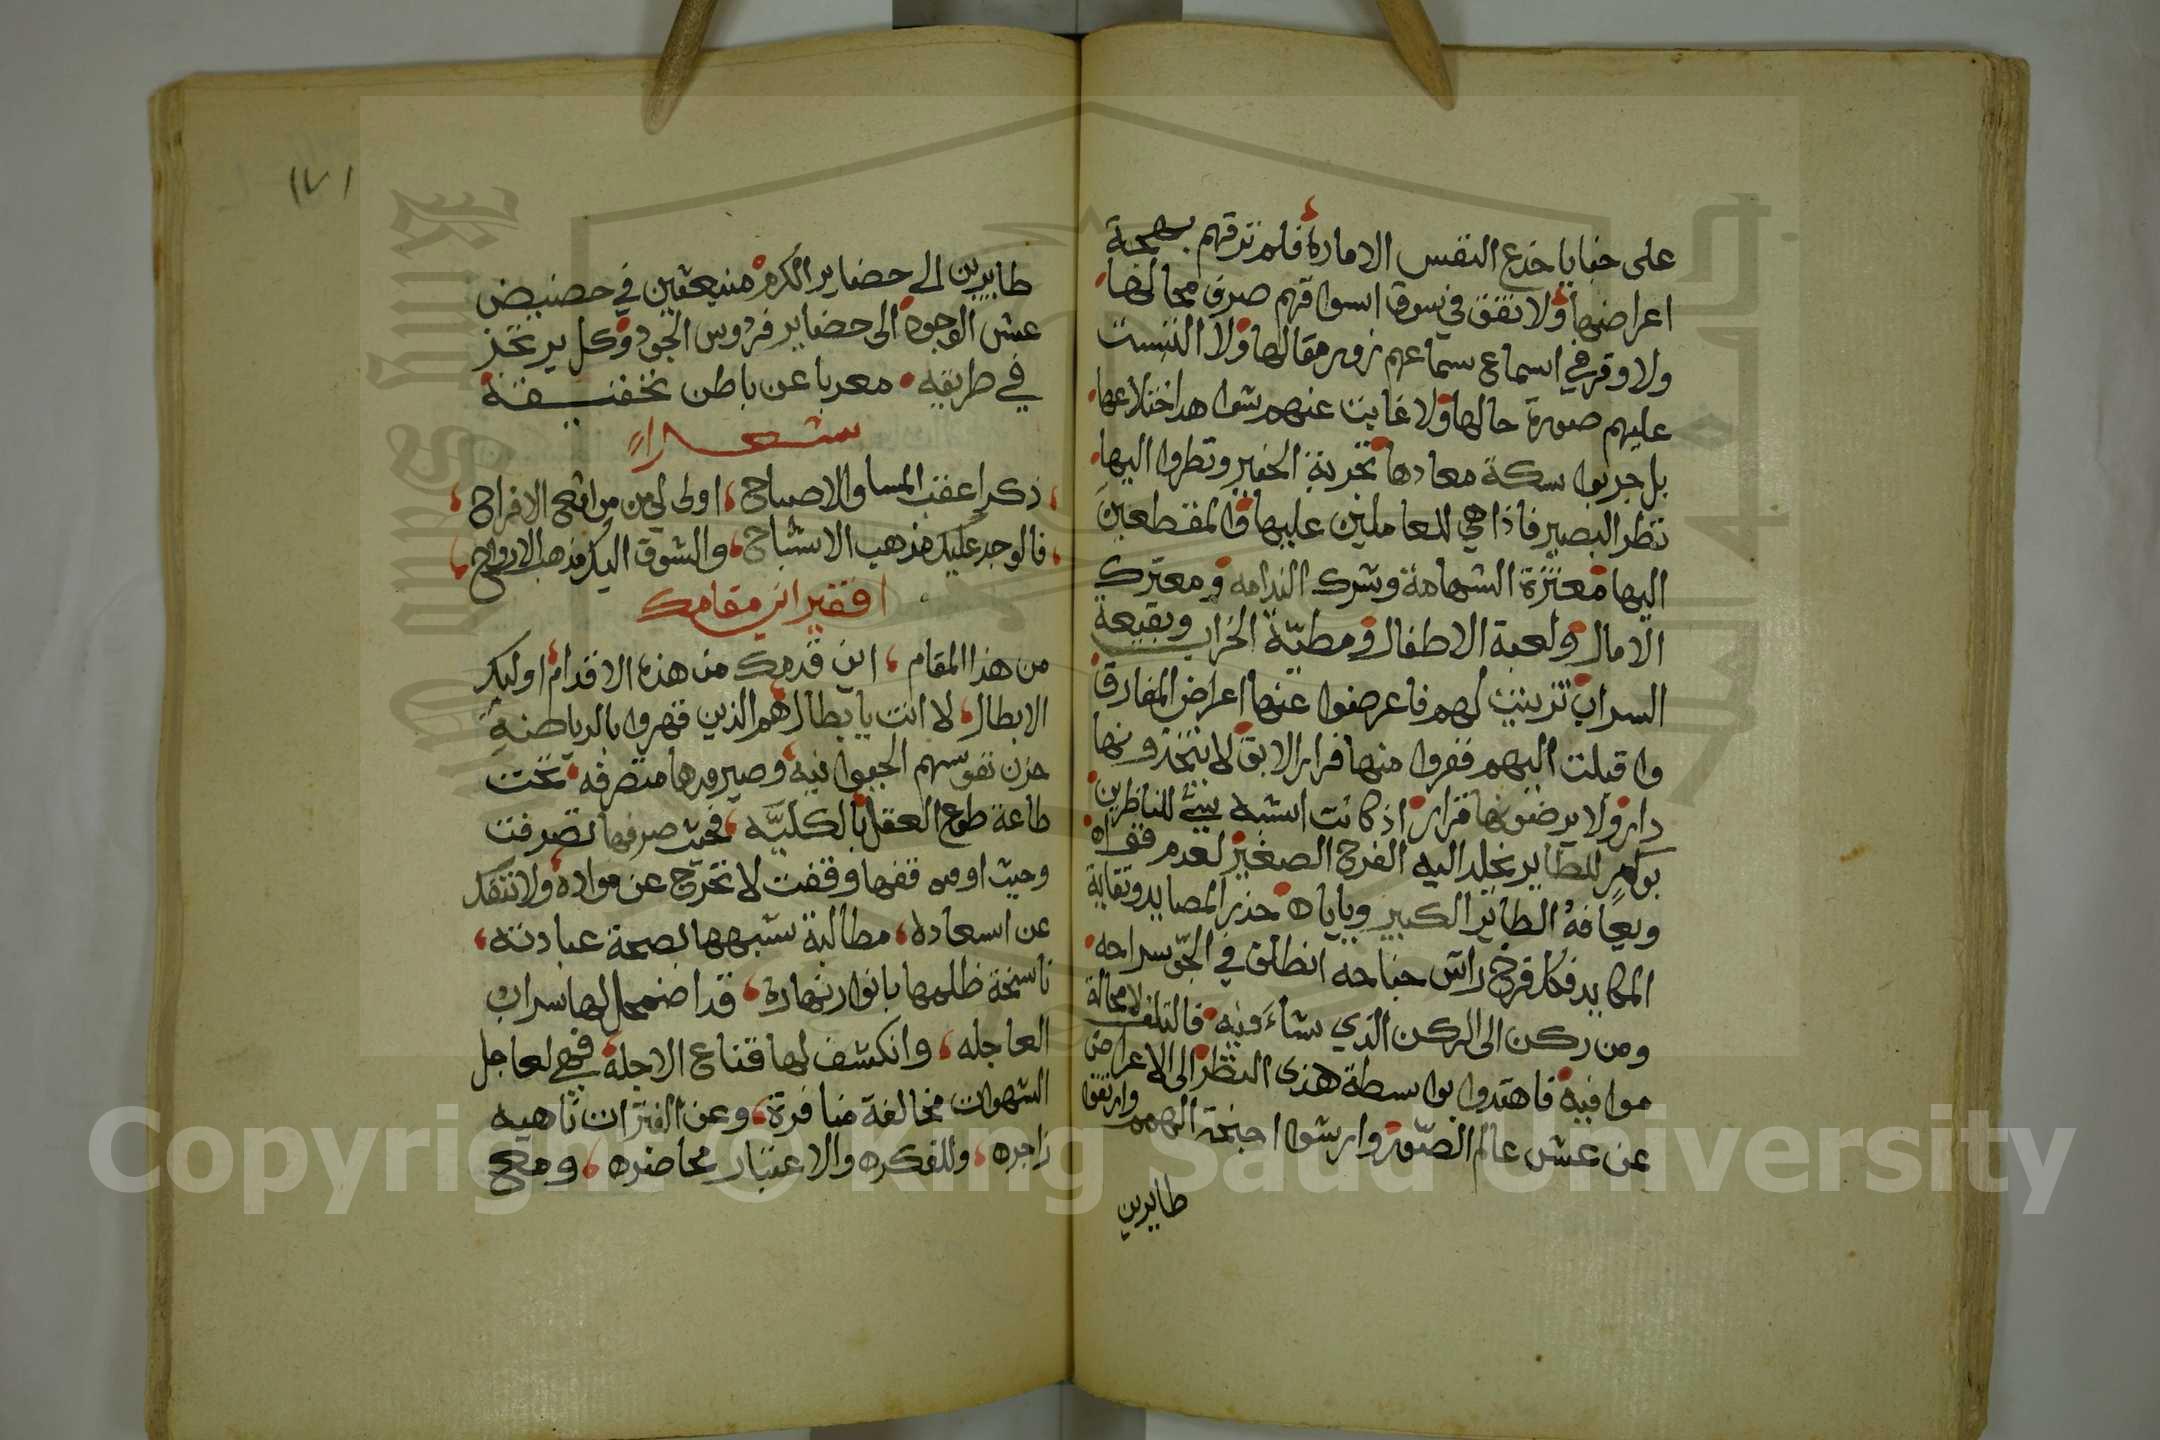 على خبايا خدع النفس الامارة فلم ترقهم بهجة
اعراضها ولا نفق في سوق اسواقهم صرف محالها
ولا وقر في اسماع سماعهم زور مقالها ولا التبست
عليهم صورة حالها ولا غابت عنهم شواهد اختلاعها
بل جربوا سكة معادها تجربة الخبير ونظروا اليها
نظر البصير فاذا هي للعاملين عليها والمقطعين
اليها معنزة الشهامة وشرك الندامه ومعترك
الامال ولعبة الاطفال ومطيّة الخراب وبقيعة
السراب تزينت لهم فاعرضوا عنها اعراض المفارق
واقبلت اليهم ففروا منها فرار الابق لا يتخذونها
دار ولا يرضونها قرار اذ كانت اشبه شئ للناظرين
بوكر للطاير يخلد اليه الفرح الصغير لعدم قفراه
ويعافه الطاير الكبير وياباه حذر المصايد وتقاية
المكايد فكل فرخ راش جناحه انطلق في الجوّ سراحه
ومن ركن الى الركن الذي نشاء فيه فالتلف لا محالة
موافيه فاهتدوا بواسطة هذى النظر الى الاعراض
عن عش عالم الصّورة وارشوا اجنحة الهمم وارتفقوا
طايرين
١٧١
طايرين الى حضاير الكرم منبعثين في حضيض
عش الوجود الى حضاير فردوس الجود وكل يرتجز
في طريقه معربا عن باطن تحقيقه
شعراء
ذكراك عقب المسا والاصباح اولى لي من مواقع الافراح
فالوجد عليك مذهب الاشباح والشوق اليك مذهب الارواح
افقير اين مقامك
من هذا المقام اين قدمك من هذه الاقدام اوليك
الابطال لا انت يا بطال هم الذين قهروا بالرياضة
حزن نفوسهم الحيوانيه وصيروها متصرفه تحت
طاعة طوع العقل بالكليّه فحيث صرفها تصرفت
وحيث اوقفها وقفت لا تخرج عن مواده ولا تنفك
عن اسعاده مطالبة شبهها بصحة عبادته
ناسخة ظلمها بانوار نهاره قد اضمحل لها سراب
العاجله وانكشف لها قناع الاجلة فهي لعاجل
الشهوات مخالفة منافرة وعن الفترات ناهيه
زاجره وللفكره والاعتبار محاضره ومع
Copyright © King Saud University
King Saud University